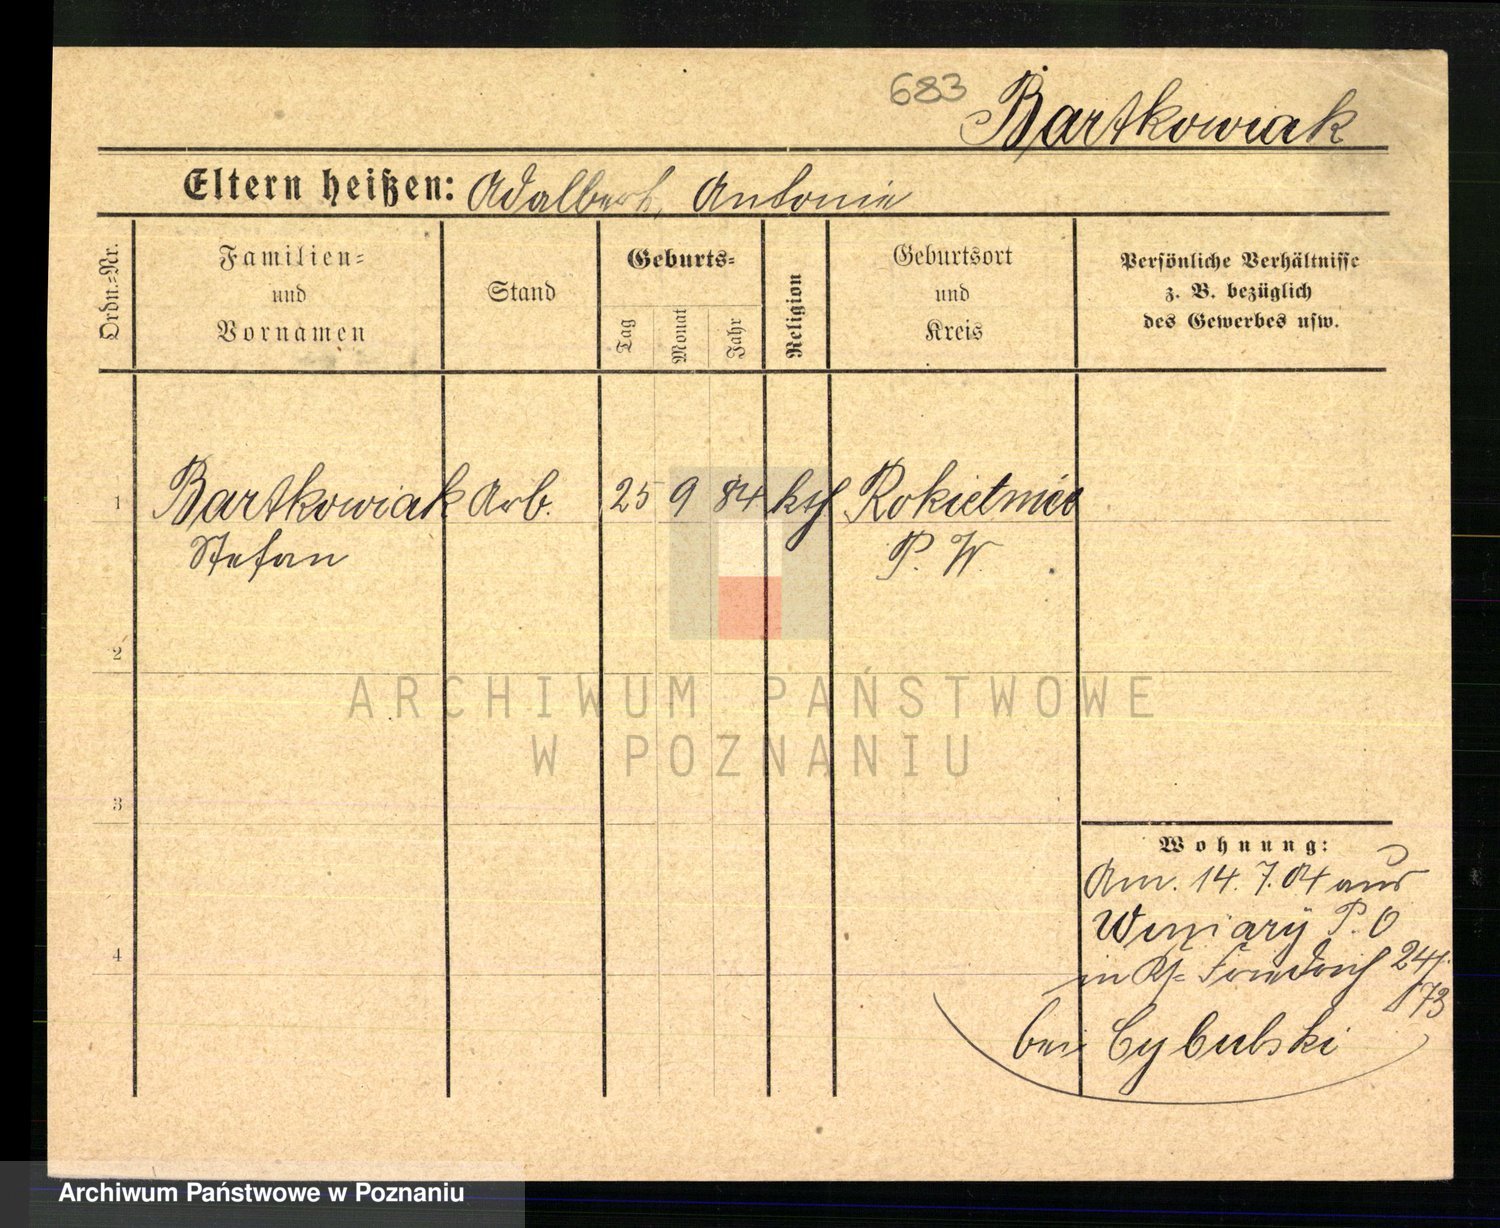 683 Bartkowiak
Eltern heißen: Adalbert, Antonie
Ordn.-Nr.
Familien-
und
Vornamen
Stand
Geburts-
Tag
Monat
Jahr
Religion
Geburtsort
und
Kreis
Persönliche Verhältnisse
z. B. bezüglich
des Gewerbes usw.
1 Bartkowiak Arb. 25 9 84 kth Rokietnica
Stefan P. W.
2
ARCHIWUM PAŃSTWOWE
W POZNANIU
3
Wohnung:
Am. 14. 7. 04 aus
Winiary P. O
4
in Friedrich 24/
73
bei Cybulski
Archiwum Państwowe w Poznaniu